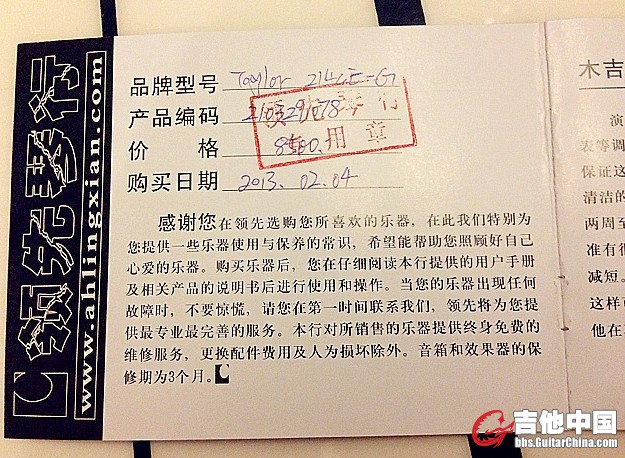 领先琴行
www.ahlingxian.com
品牌型号 Taylor 214CE-G
产品编码
价格 8500
购买日期 2013.02.04
用章
感谢您在领先选购您所喜欢的乐器，在此我们特别为
您提供一些乐器使用与保养的常识，希望能帮助您照顾好自己
心爱的乐器。购买乐器后，您在仔细阅读本行提供的用户手册
及相关产品的说明书后进行使用和操作。当您的乐器出现任何
故障时，不要惊慌，请您在第一时间联系我们，领先将为您提
供最专业最完善的服务。本行对所销售的乐器提供终身免费的
维修服务，更换配件费用及人为损坏除外。音箱和效果器的保
修期为3个月。
木吉
演
表等调
保证这
清洁的
两周至
准有很
减短。
这样可
他在
吉他中国
bbs.GuitarChina.com